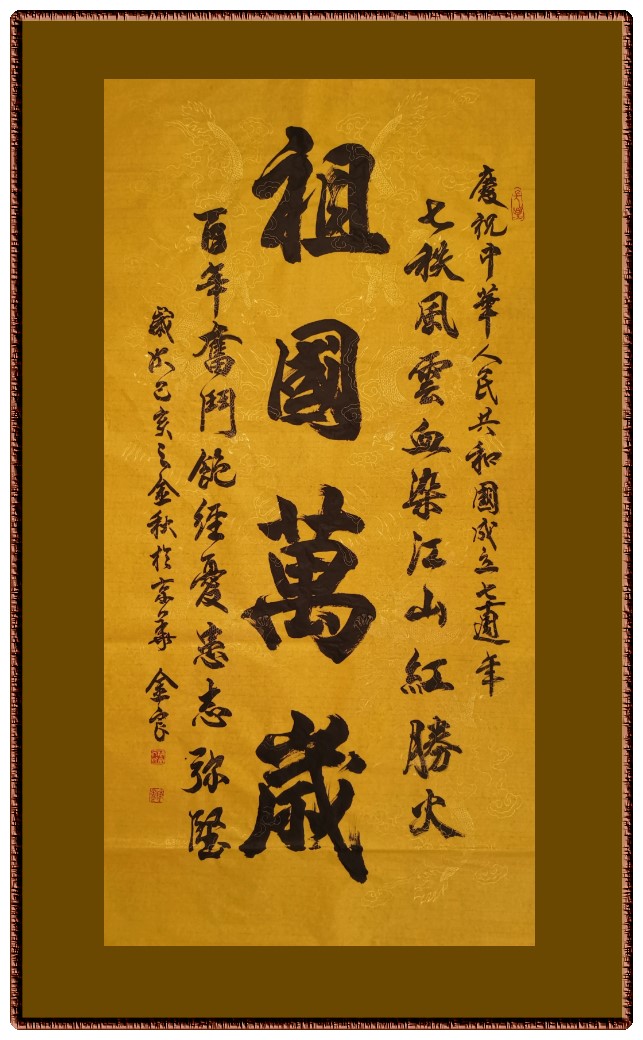 慶祝中華人民共和國成立七十週年
七秩風雲血染江山紅勝火
祖國萬歲
百年奮鬥飽經憂患志弥堅
歲次己亥之金秋於京華 金良